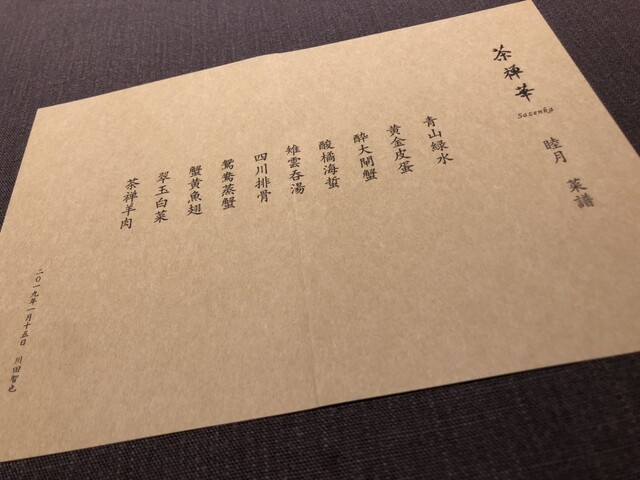 茶禅華
Sazenka
睦月 菜譜
青山緑水
黄金皮蛋
酔大閘蟹
酸橘海蜇
雉雲呑湯
四川排骨
鴛鴦蒸蟹
蟹黄魚翅
翠玉白菜
茶禅羊肉
二〇一九年一月十五日 川田智也